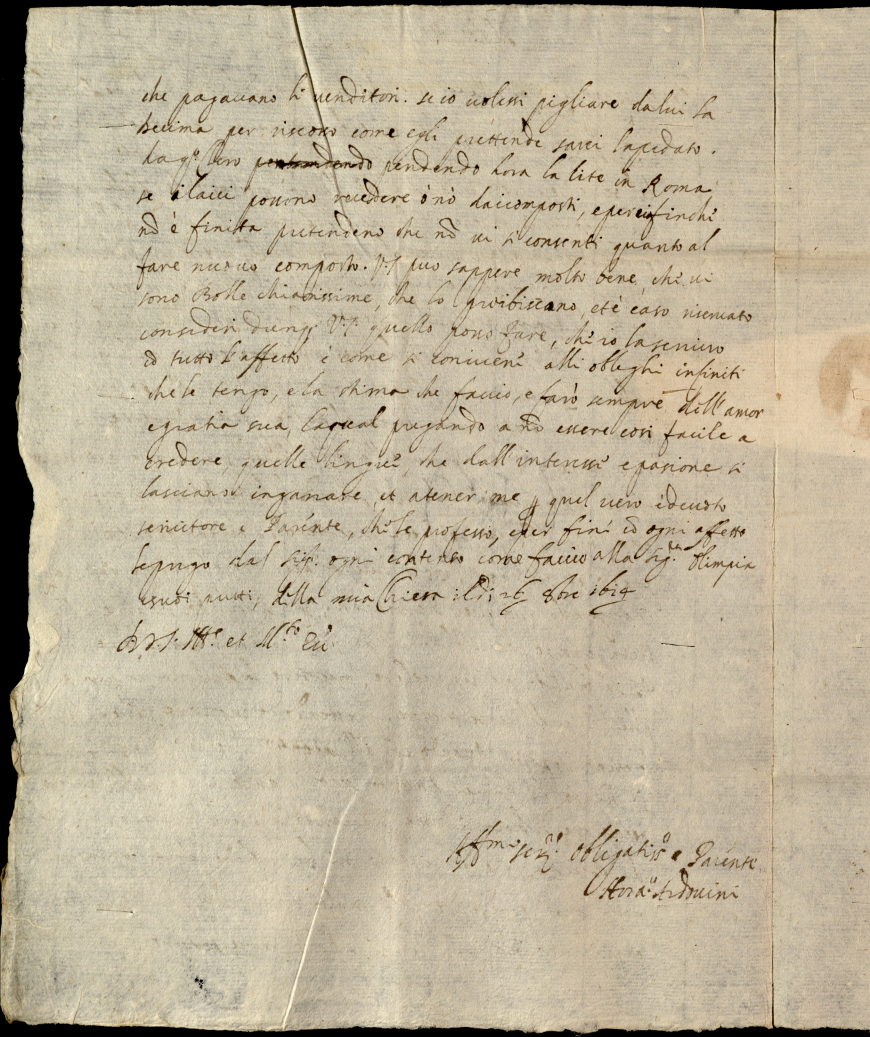 che pagavano li venditori. se io volessi pigliare da lui la
decima per riscossa come egli prettende sarei lapidato.
pendendo hora la lite in Roma
se i laici possono recedere ò nò dai composti, e per ciò finche
nō è finita pretendeno che nō vi si consenti quanto al
fare nuovo composto. V.S. può sappere molto bene, che vi
sono Bolle chiarissime, che lo proibiscano, et è caso riservato
consideri dunq; V.S. quello posso fare, che io la servirò
cō tutto l'affetto è come si conviene alli oblighi infiniti
che le tengo, e la stima che faccio, e farò sempre dell'amor
e gratia sua, la qual pregando a nō essere così facile a
credere, quelle lingue, che dall'interesse e pasione si
lasciano ingannare, et a tener me p quel vero e devoto
servitore e Parente, che le professo, e per fine cō ogni affetto
le prego dal Sig. ogni contento come faccio alla Sig.ra Olimpia
e suoi putti, della mia Chiesa il dì 26 8bre 1614
Di V.S. Ill.e et M.to
Aff.mo ser.re obligatis.o e Parente
Hora.o Ardouini